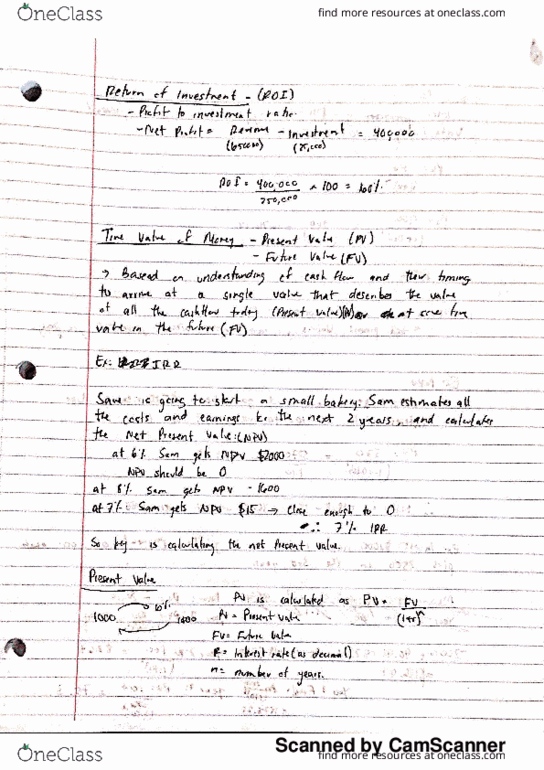 OneClass
find more resources at oneclass.com
Return of Investment - (ROI)
- Profit to investment ratio.
- Net Profit = Revenue - Investment = 400,000
(650000) (25,000)
ROI = 400,000 × 100 = 160%
250,000
Time Value of Money - Present Value (PV)
- Future Value (FV)
→ Based on understanding of cash flow and their timing
to arrive at a single value that describes the value
of all the cashflow today (Present Value) or at some time
value in the future (FV)
Ex: IRR
Sam is going to start a small bakery. Sam estimates all
the costs and earnings for the next 2 years and calculates
the Net Present Value: (NPV)
at 6% Sam gets NPV $2000
NPV should be 0
at 8% Sam gets NPV -1600
at 7% Sam gets NPV $15 → Close enough to 0
∴ 7% IRR
So key is calculating the net Present value.
Present Value
PV is calculated as PV = FV
(1+r)^n
1000 10%
PV = Present Value
FV = Future Value
R = Interest rate (as decimal)
n = number of years.
Scanned by CamScanner
OneClass
find more resources at oneclass.com